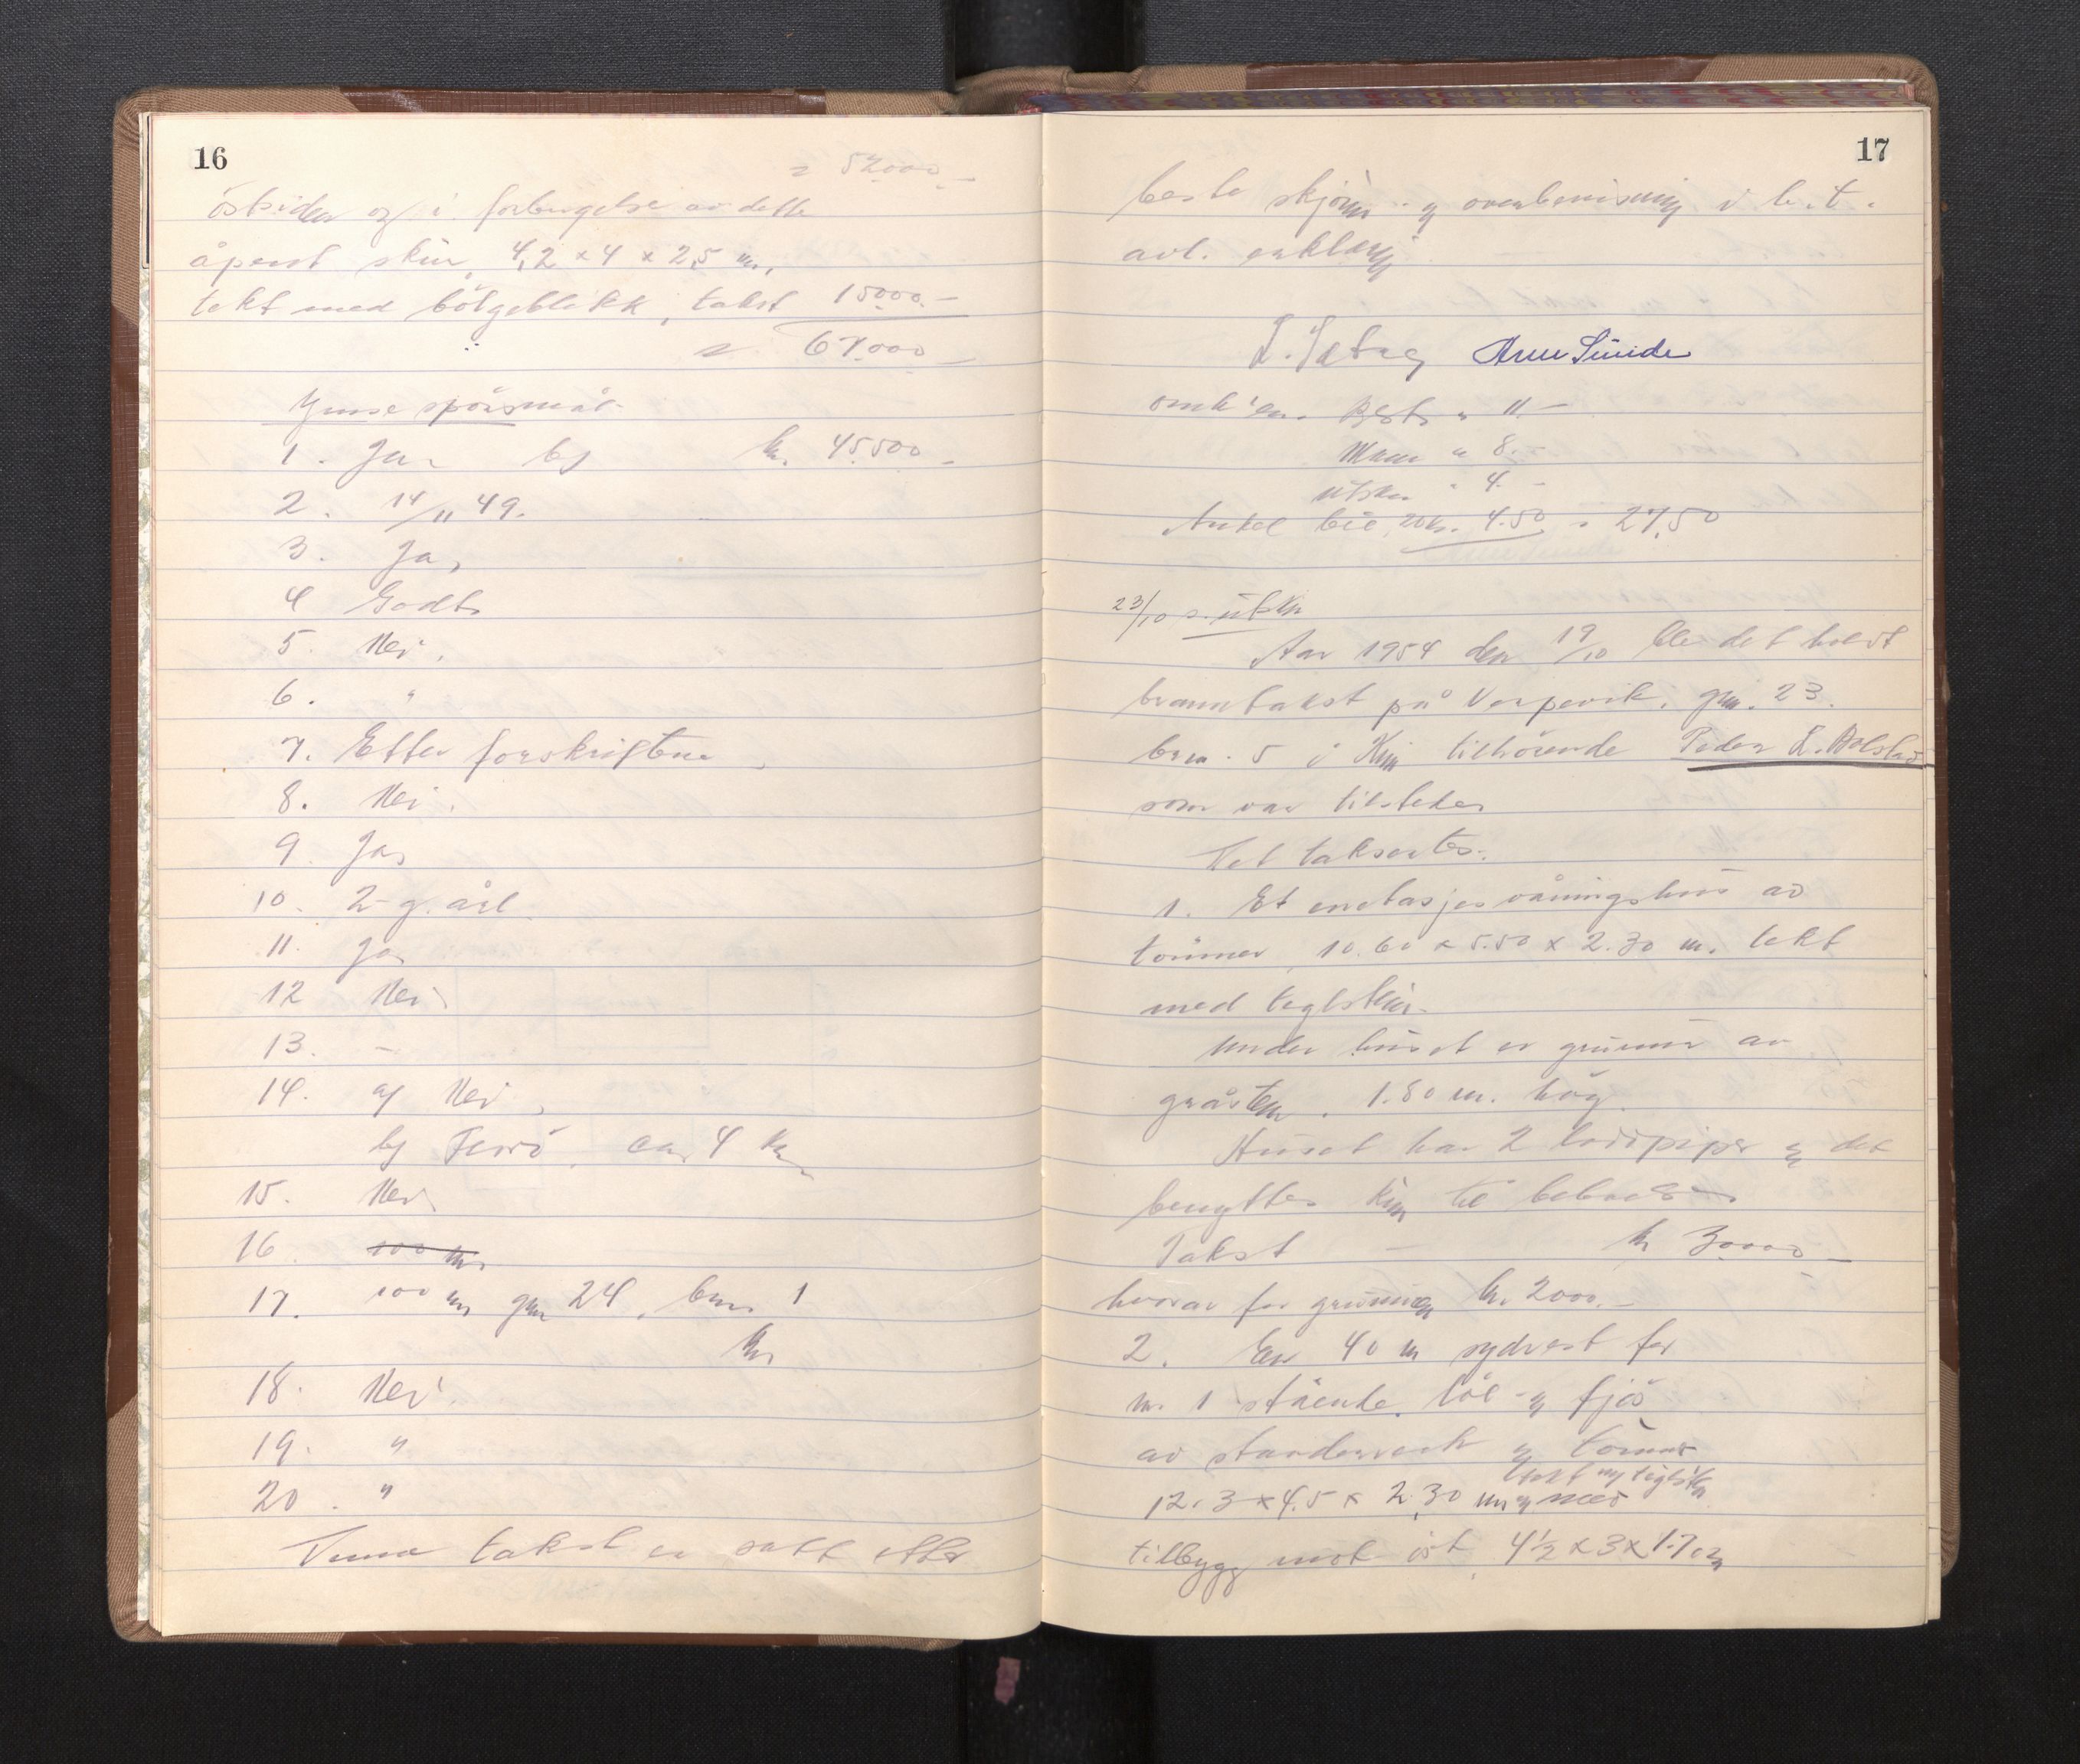 16
= 52000.-
östsiden og i forlengelse av dette
åpent skur, 4,2 x 4 x 2,5 m,
tekt med bölgeblekk, takst 15000.-
= 67.000.-
Ymse spörsmål
1. Ja, b) kr. 45.500.-
2. 14/11 49.
3. Ja,
4 Godt
5. Nei,
6. "
7. Etter forskriftene
8. Nei.
9. Ja,
10. 2 g. årl.
11. Ja
12 Nei
13. -
14. a) Nei,
b) ca, 4 km
15. Nei
16. 100 m
17. 100 m gnr 24, bnr 1
Kr
18. Nei.
19. "
20. "
Denne takst er satt etter
17
beste skjönn og overbevisning i h.t.
avl. erklæring
L. Sæbæ Arne Sunde
omk'en. Best. " 11.-
Mann " 8.-
utskr. " 4.-
Ankel bil, 4.50 = 27,50
23/10 s. utskr
Aar 1954 den 19/10 ble det holdt
branntakst på Verpevik, gnr. 23.
brnr. 5 i Kinn tilhörende Peder L. Bolstad
som var tilstede.
Det taksertes:
1. Et enetasjes våningshus av
tömmer 10.60 x 5.50 x 2.30 m. tekt
med teglstein.
Under huset er grunnmur av
gråsten. 1.80 m. hög.
Huset har 2 brannpiper og det
benyttes kun til beboelse
Takst - kr 30000.-
hvorav for grunnmuren kr. 2000.-
2. En 40 m sydvest for
nr. 1 stående löe og fjös
av stenderverk og tömmer
tekt m/ teglstein
12.3 x 4.5 x 2.30 m og med
tilbygg mot öst 4½ x 3 x 1.70 m